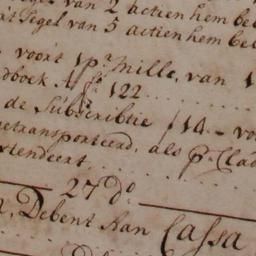 van 2 actien hem be
't Segel van 5 actien hem be
voor't 1 pr mille, van 1
dboek A fo 122
de Subscribtie f14.- vo
getransporteerd, als pr Clad
rtendeert
27 do
Debent Aan Cassa